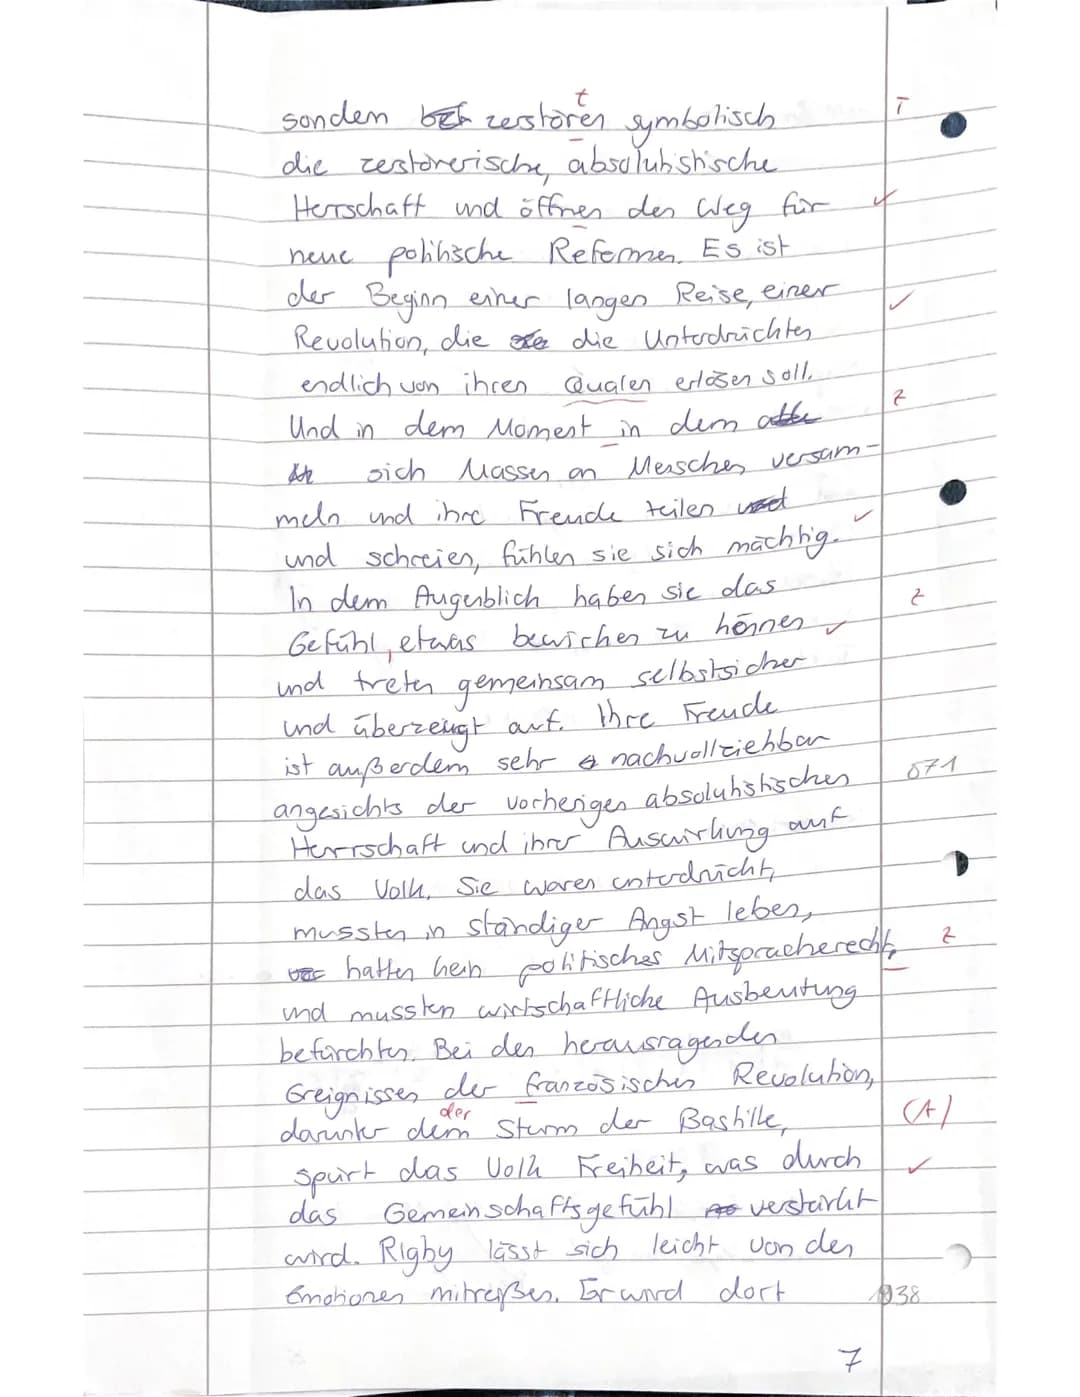 t
sondern zerstören symbolisch T
die zerstörerische, absolutistische
Herrschaft und öffnen den Weg für ✓
neue politische Reformen. Es ist
der Beginn einer langen Reise, einer ✓
Revolution, die die Unterdrückten
endlich von ihren Qualen erlösen soll.
Und in dem Moment in dem alle Z
sich Massen an Menschen versam-
meln und ihre Freude teilen und ✓
und schreien, fühlen sie sich mächtig.
In dem Augenblick haben sie das Z
Gefühl, etwas bewirken zu können ✓
und treten gemeinsam selbstsicher
und überzeugt auf. Ihre Freude
ist außerdem sehr nachvollziehbar
angesichts der vorherigen absolutistischen 871
Herrschaft und ihrer Auswirkung auf
das Volk. Sie waren unterdrückt,
mussten in ständiger Angst leben,
hatten kein politisches Mitspracherecht, Z
und mussten wirtschaftliche Ausbeutung
befürchten. Bei den herausragenden
Ereignissen der französischen Revolution,
der
darunter dem Sturm der Bastille, (A)
spürt das Volk Freiheit, was durch ✓
das Gemeinschaftsgefühl verstärkt
wird. Rigby lässt sich leicht von den
Emotionen mitreißen. Er wird dort 938
7